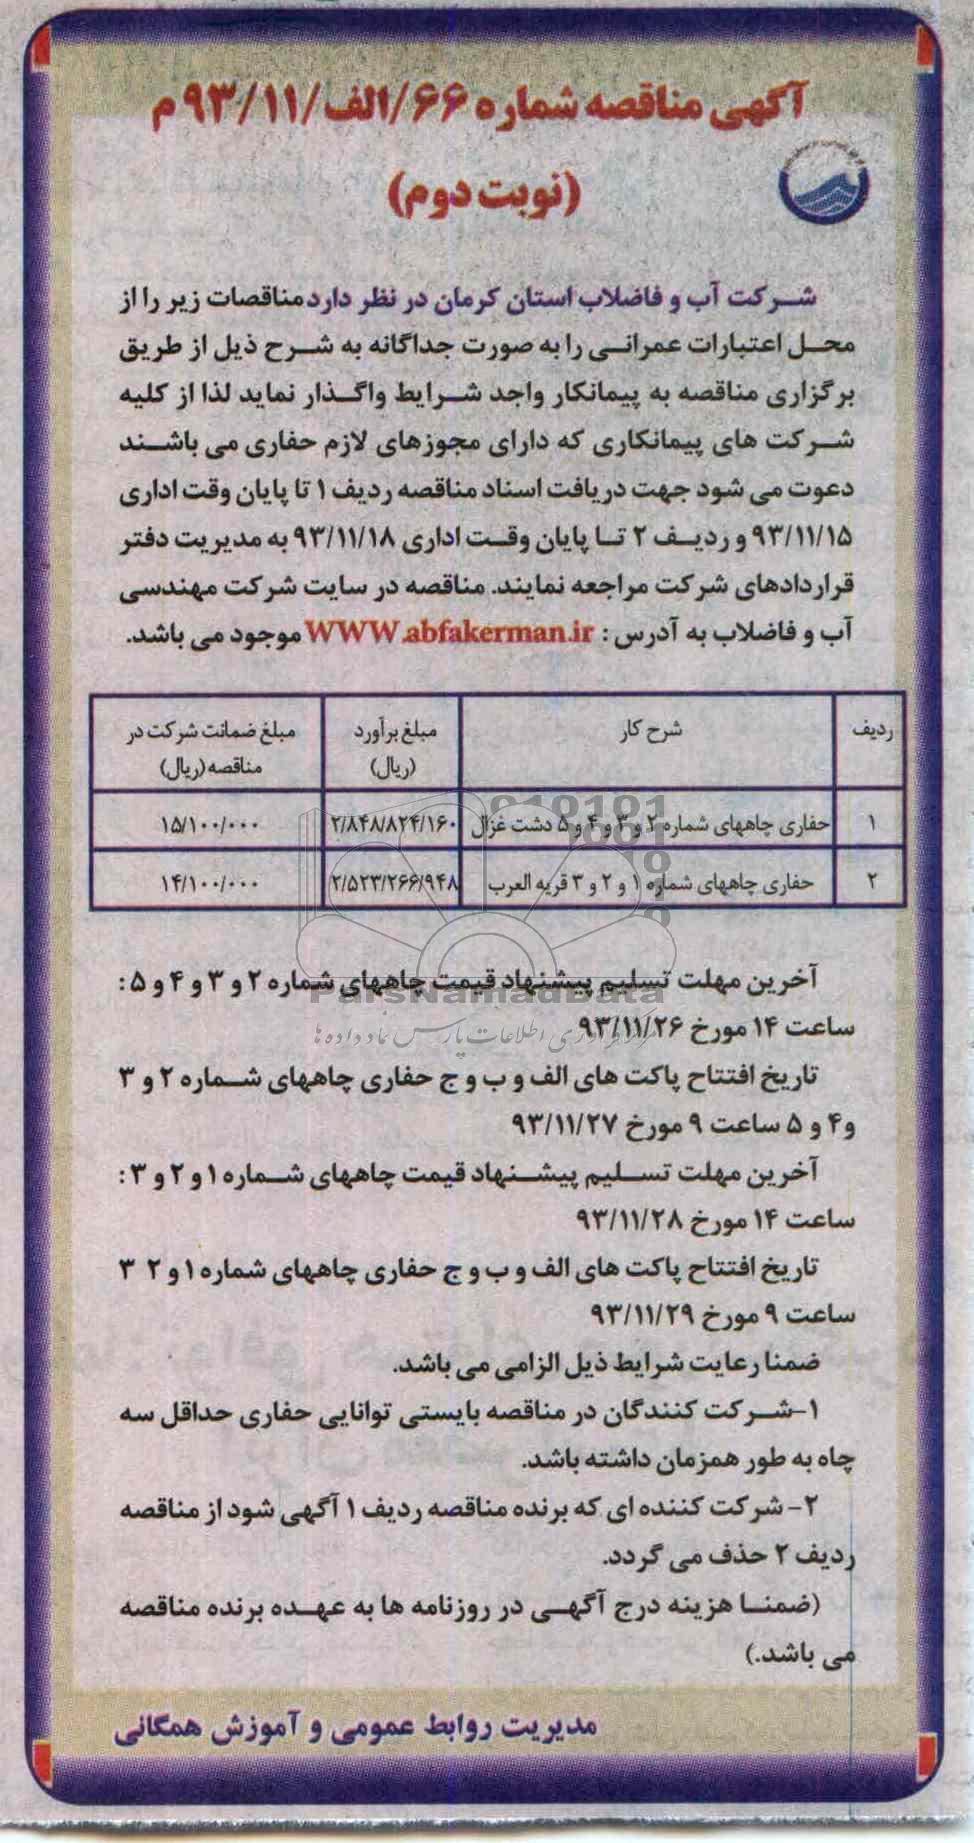 آگهی مناقصه شماره ۶۶/الف/۹۳/۱۱ م
(نوبت دوم)
شرکت آب و فاضلاب استان کرمان در نظر دارد مناقصات زیر را از
محل اعتبارات عمرانی را به صورت جداگانه به شرح ذیل از طریق
برگزاری مناقصه به پیمانکار واجد شرایط واگذار نماید لذا از کلیه
شرکت های پیمانکاری که دارای مجوزهای لازم حفاری می باشند
دعوت می شود جهت دریافت اسناد مناقصه ردیف ۱ تا پایان وقت اداری
۹۳/۱۱/۱۵ و ردیف ۲ تا پایان وقت اداری ۹۳/۱۱/۱۸ به مدیریت دفتر
قراردادهای شرکت مراجعه نمایند. مناقصه در سایت شرکت مهندسی
آب و فاضلاب به آدرس : WWW.abfakerman.ir موجود می باشد.
ردیف شرح کار مبلغ برآورد (ریال) مبلغ ضمانت شرکت در مناقصه (ریال)
۱ حفاری چاههای شماره ۲ و ۳ و ۴ و ۵ دشت غزال ۲/۸۴۸/۸۲۴/۱۶۰ ۱۵/۱۰۰/۰۰۰
۲ حفاری چاههای شماره ۱ و ۲ و ۳ قریه العرب ۲/۵۲۳/۲۶۶/۹۴۸ ۱۴/۱۰۰/۰۰۰
ParsNamadData
آخرین مهلت تسلیم پیشنهاد قیمت چاههای شماره ۲ و ۳ و ۴ و ۵ :
ساعت ۱۴ مورخ ۹۳/۱۱/۲۶
تاریخ افتتاح پاکت های الف و ب و ج حفاری چاههای شماره ۲ و ۳
و۴ و ۵ ساعت ۹ مورخ ۹۳/۱۱/۲۷
آخرین مهلت تسلیم پیشنهاد قیمت چاههای شماره ۱ و ۲ و ۳ :
ساعت ۱۴ مورخ ۹۳/۱۱/۲۸
تاریخ افتتاح پاکت های الف و ب و ج حفاری چاههای شماره ۱ و ۲ ۳
ساعت ۹ مورخ ۹۳/۱۱/۲۹
ضمنا رعایت شرایط ذیل الزامی می باشد.
۱-شرکت کنندگان در مناقصه بایستی توانایی حفاری حداقل سه
چاه به طور همزمان داشته باشد.
۲- شرکت کننده ای که برنده مناقصه ردیف ۱ آگهی شود از مناقصه
ردیف ۲ حذف می گردد.
(ضمنا هزینه درج آگهی در روزنامه ها به عهده برنده مناقصه
می باشد.)
مدیریت روابط عمومی و آموزش همگانی